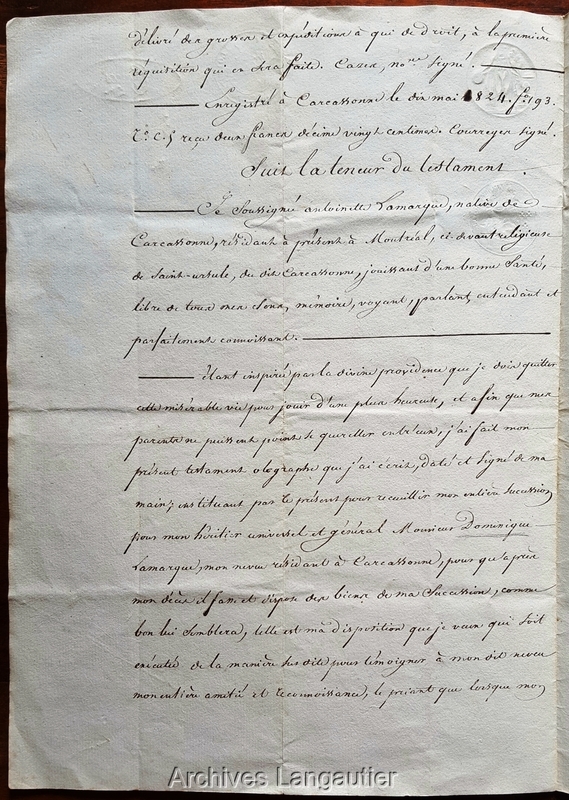 délivré des grosses et expéditions à qui de droit, à la première
réquisition qui en sera faite. Cazes, nore signé.
Enregistré à Carcassonne le dix mai 1824. fo. 193.
Vo. C. 5 reçu deux francs décime vingt centimes. Courreges signé.
Suit la teneur du testament.
Je Soussignée antoinette Lamarque, native de
Carcassonne, résidant à présent à Montréal, ci-devant religieuse
de Saint-ursule, du dit Carcassonne, jouissant d'une bonne Santé,
libre de tous mes sens, mémoire, voyant, parlant, entendant et
parfaitement connoissant.
étant inspirée par la divine providence que je dois quitter
cette misérable vie pour jouir d'une plus heureuse, et afin que mes
parents ne puissent point se quereller entr'eux, j'ai fait mon
présent testament olographe que j'ai écrit, daté et signé de ma
main; instituant par le présent pour recueillir mon entière succession
pour mon héritier universel et général Monsieur Dominique
Lamarque, mon neveu résidant à Carcassonne, pour qu'après
mon décès il fasse et dispose des biens de ma Succession, comme
bon lui Semblera, telle est ma disposition que je veux qui soit
exécutée de la manière sus dite pour témoigner à mon dit neveu
mon entière amitié et reconnoissance, le priant que lorsque mon
Archives Langautier